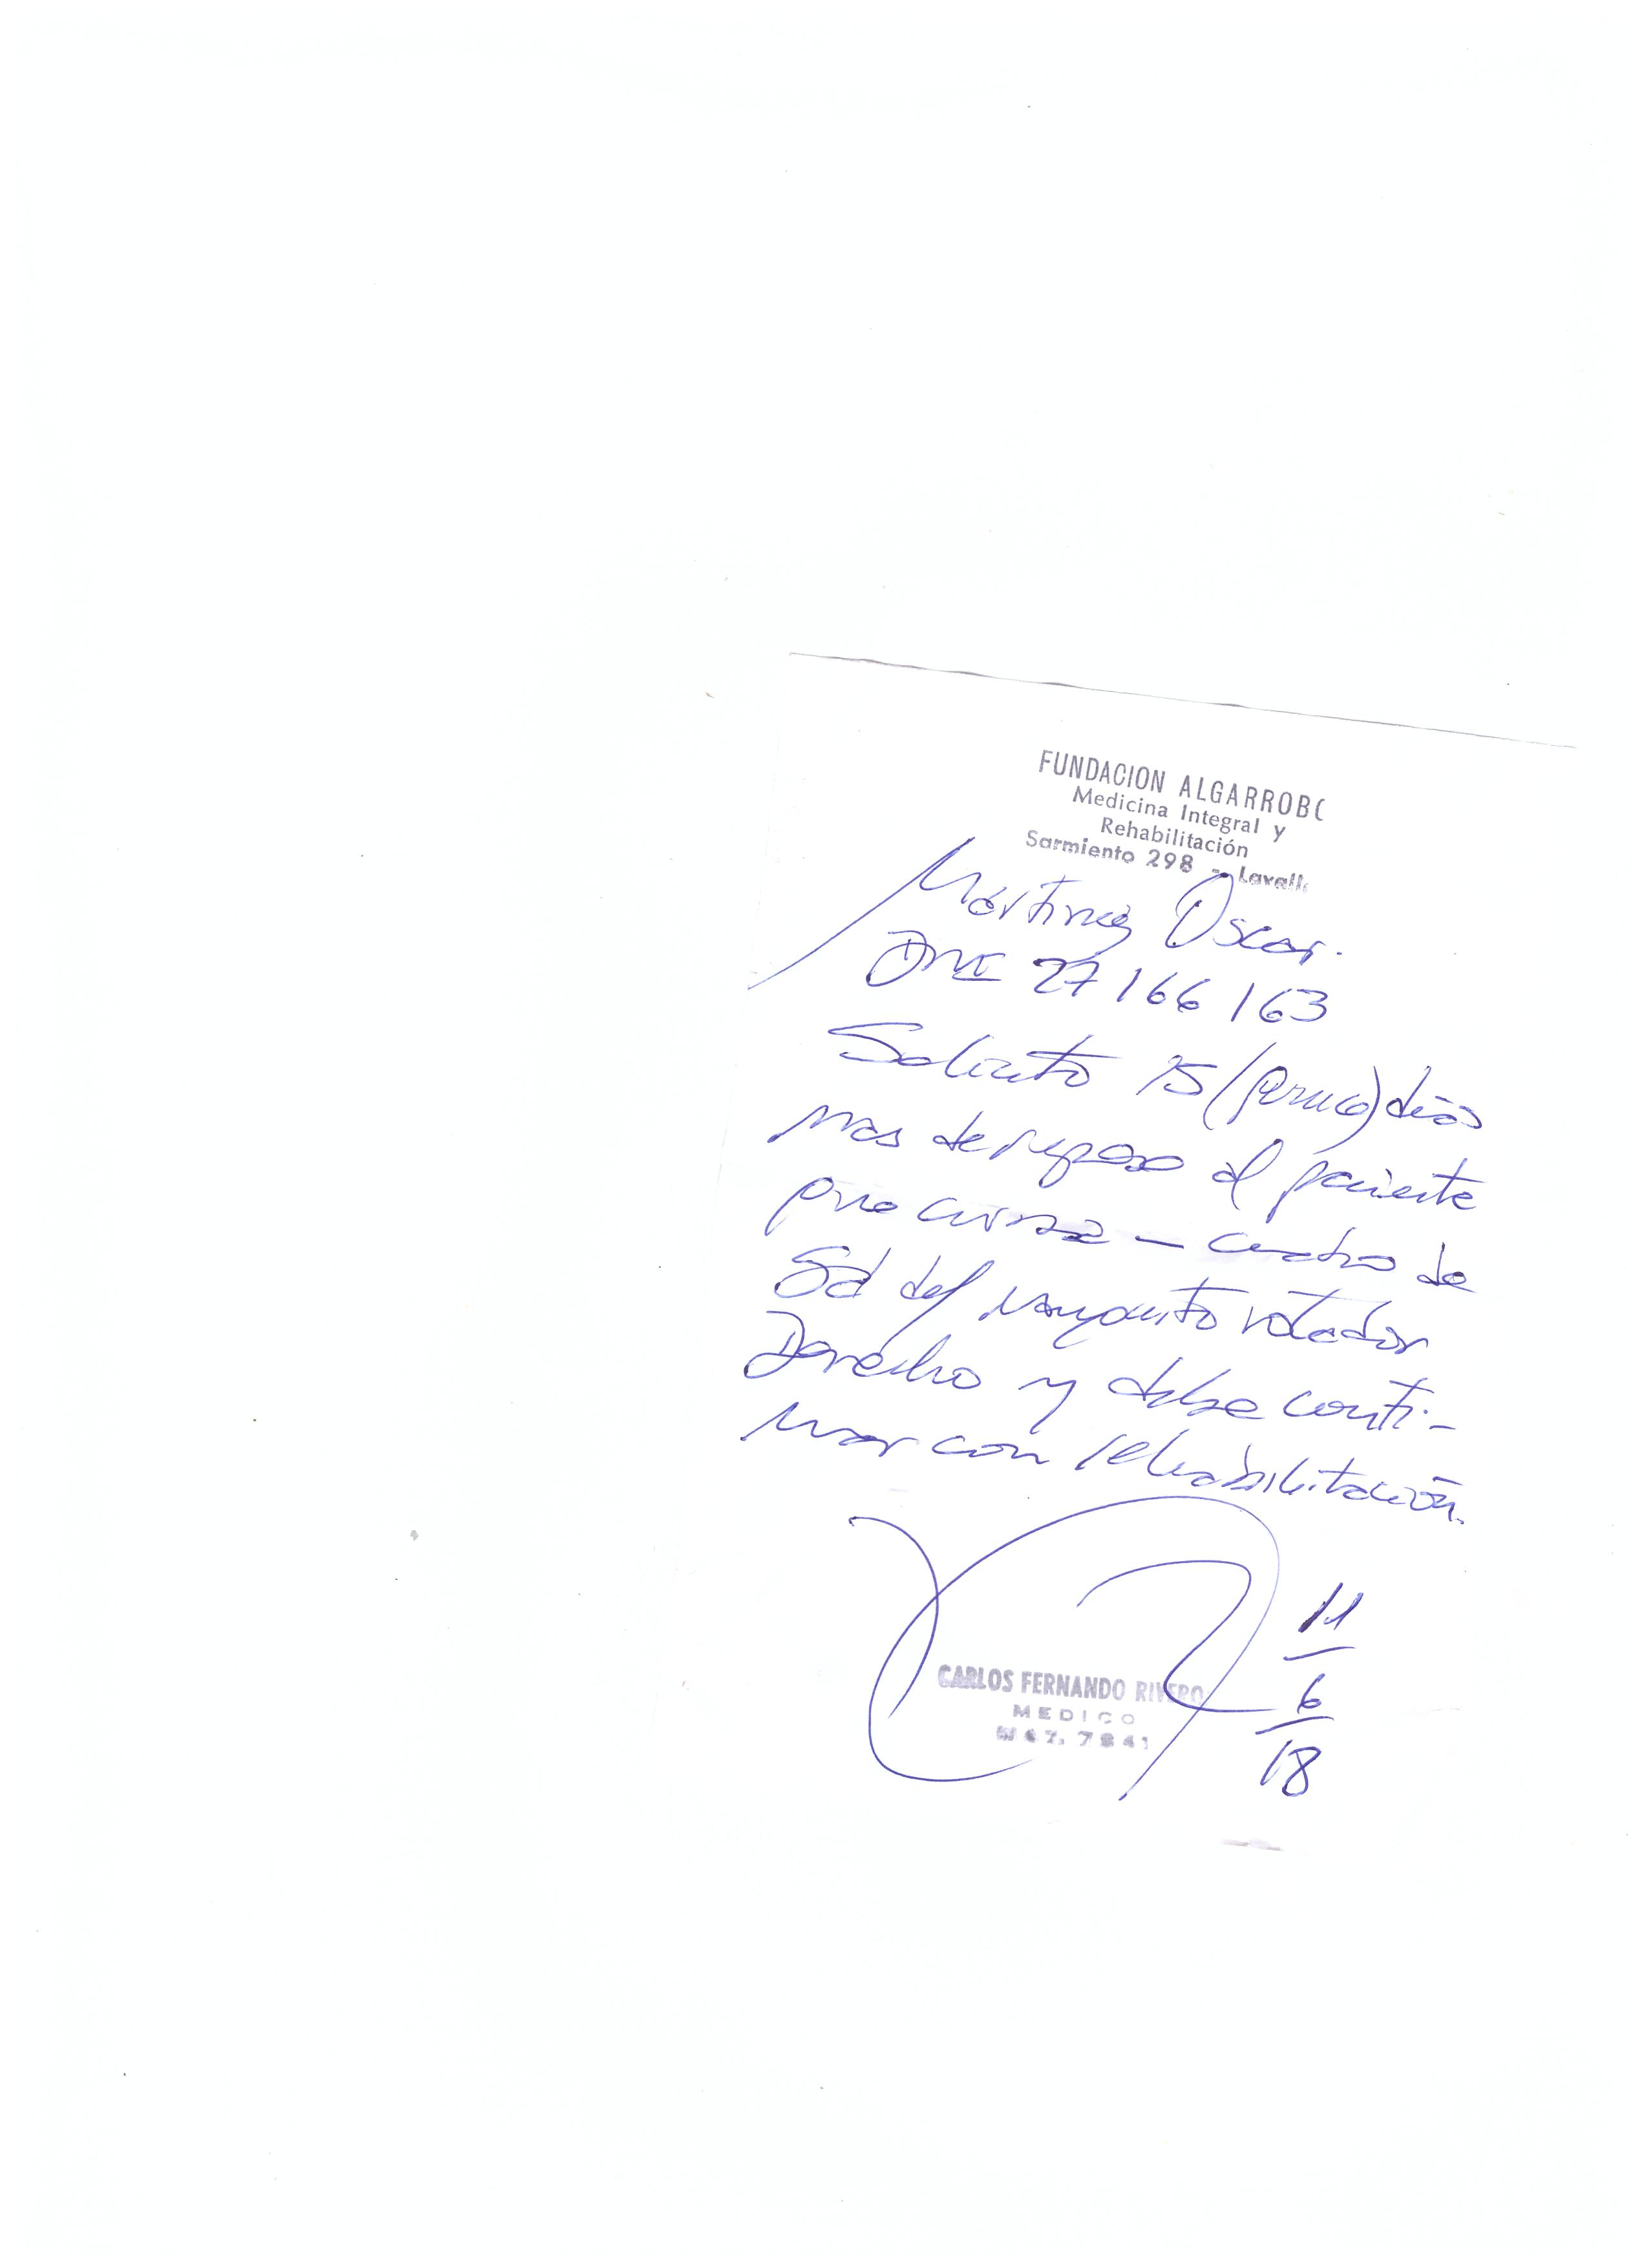 FUNDACION ALGARROBO
Medicina Integral y
Rehabilitación
Sarmiento 298 - Lavalle
Martinez Oscar.
DNI 27 166 163
Solicito 15 (quince) días
mas de reposo al paciente
que cursa - cuadro de
Sd del manguito rotador
Derecho y debe conti-
nuar con rehabilitación.
CARLOS FERNANDO RIVERO
MEDICO
MAT. 7841
11
6
18